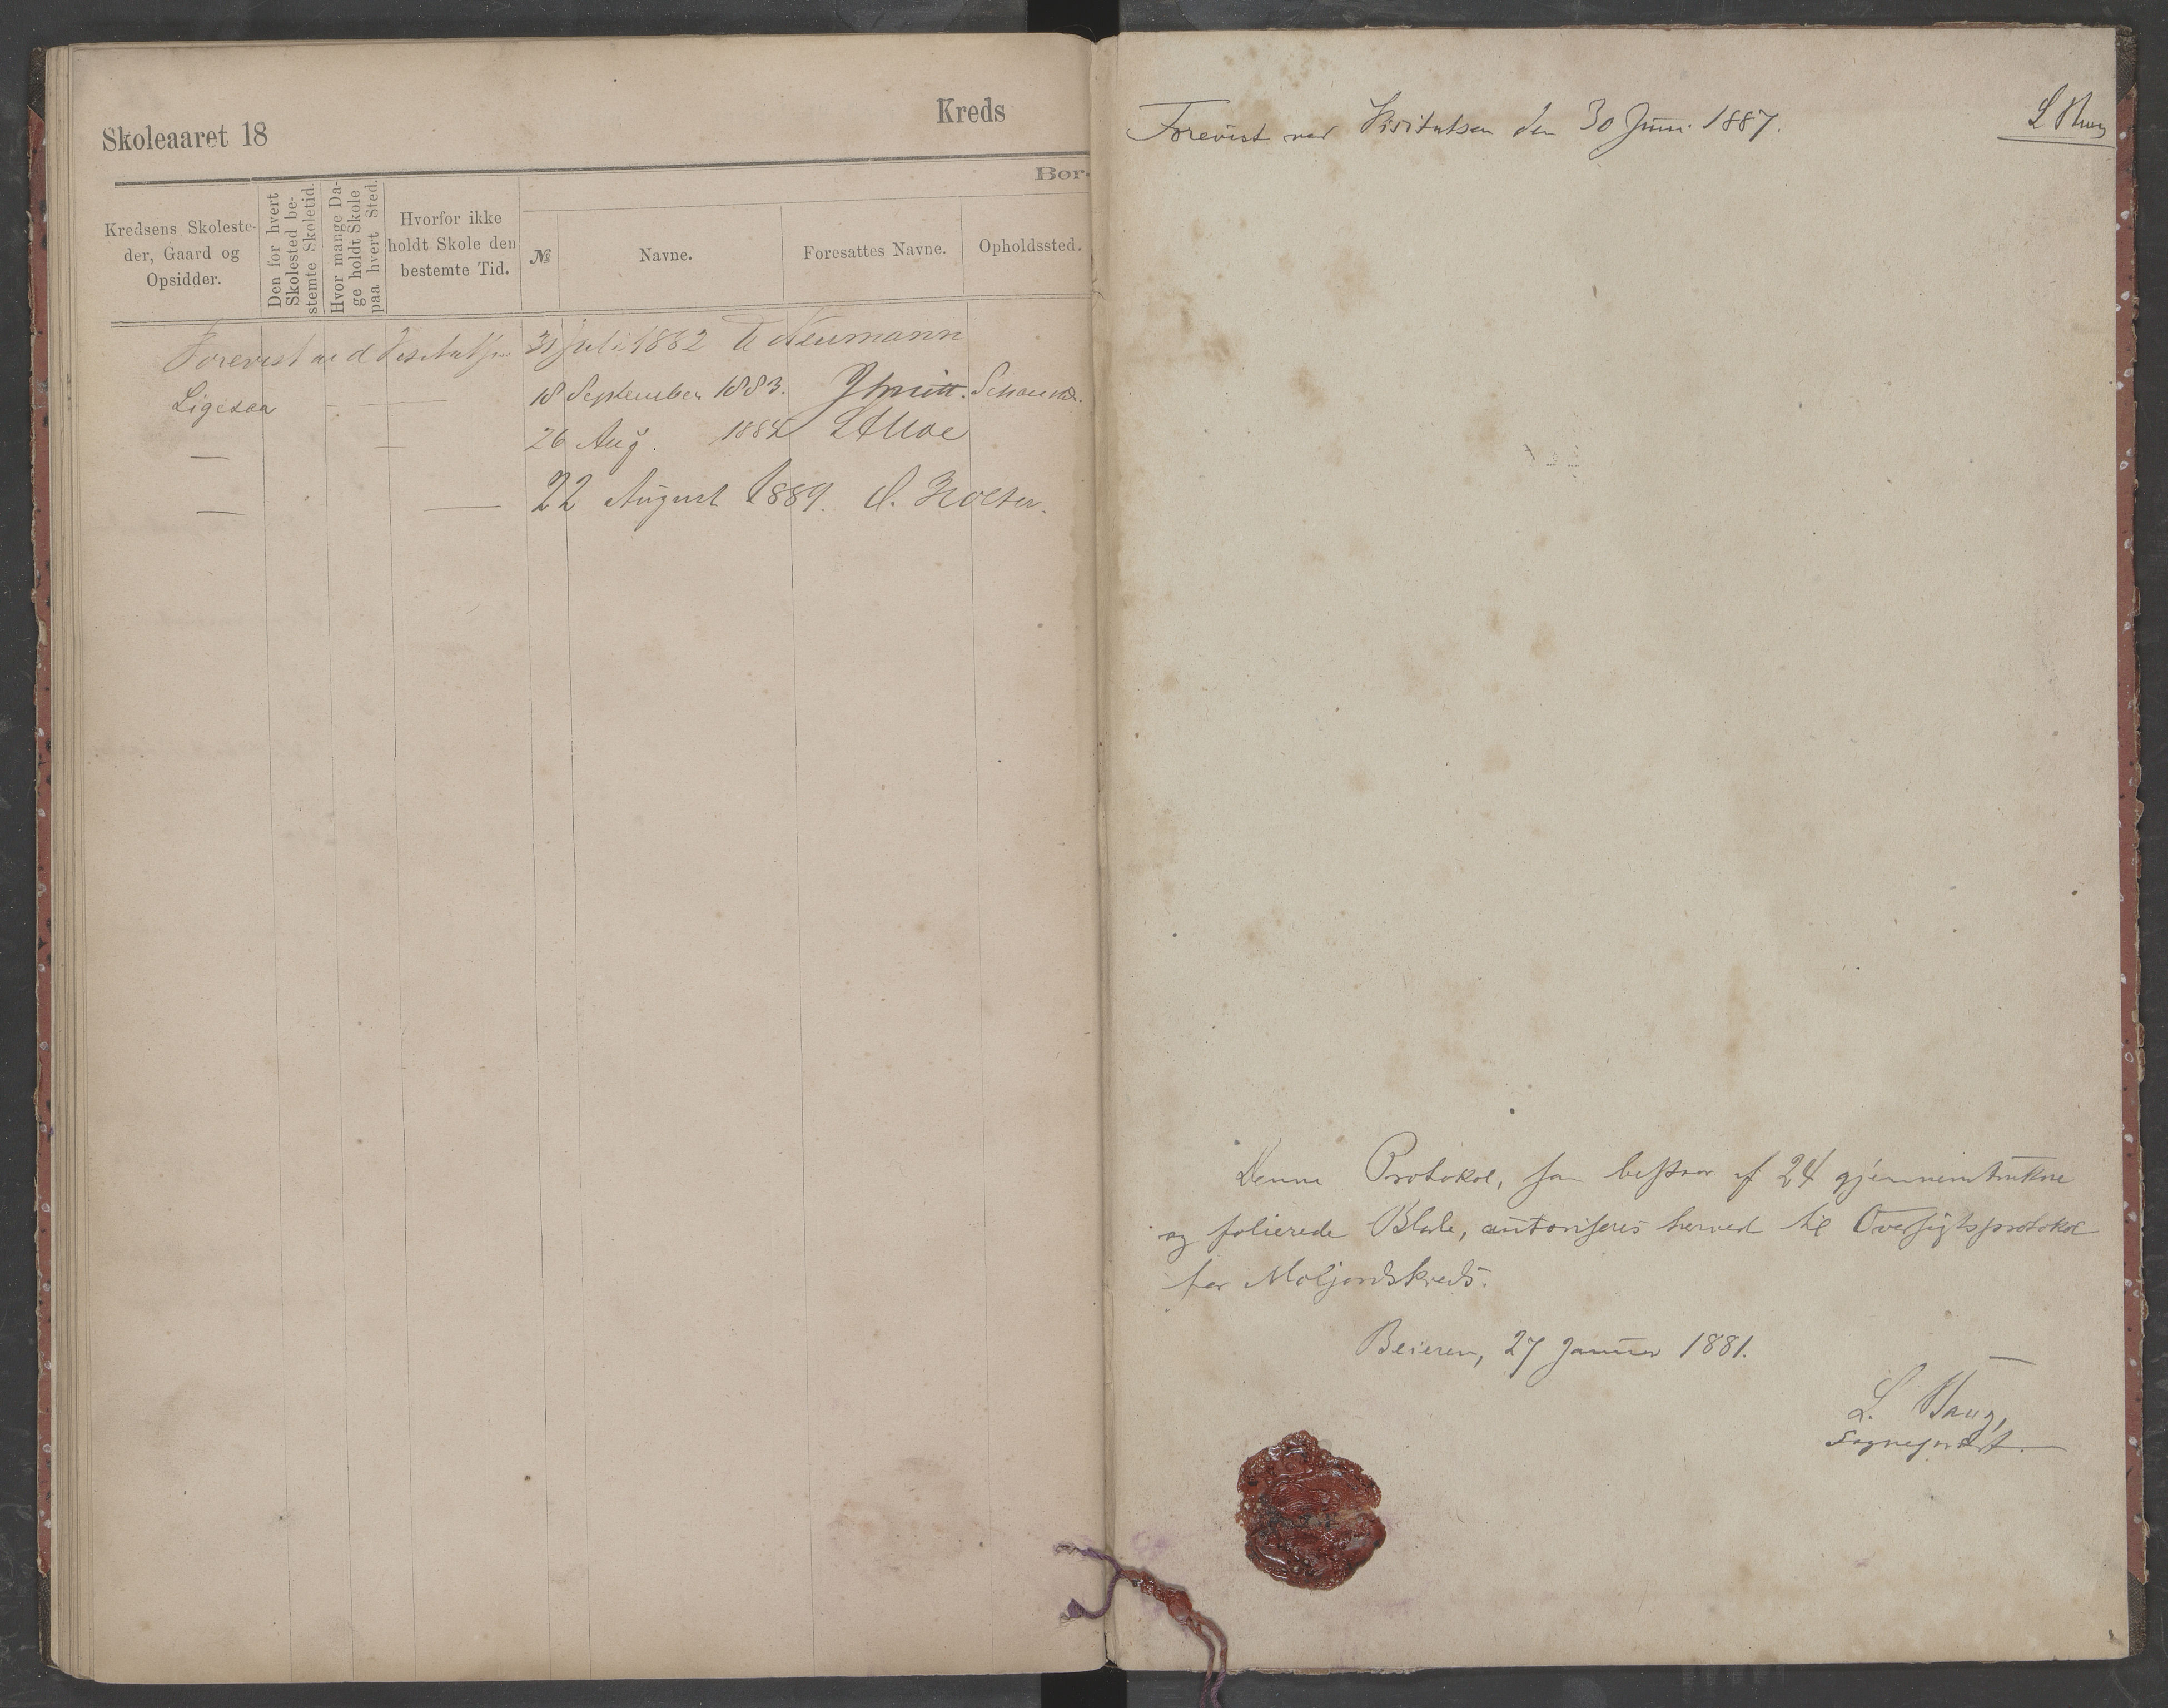 Skoleaaret 18
Kreds
Bør-
Kredsens Skoleste-
der, Gaard og
Opsidder.
Den for hvert
Skolested be-
stemte Skoletid.
Hvor mange Da-
ge holdt Skole
paa hvert Sted.
Hvorfor ikke
holdt Skole den
bestemte Tid.
№
Navne.
Foresattes Navne.
Opholdssted.
Forevist ved Visitatsen 31 Juli 1882 Neumann
Ligesaa - — 18 September 1883.
— — 26 Aug. 1884
— — 22 August 1889. Holter.
Forevist ved Visitatsen den 30 Juni 1887.
Denne Protokol, som bestaar af 24 gjennemtrukne
og folierede Blade, autoriseres herved til Oversigtsprotokol
for Moljordskreds.
Beieren, 27 Januar 1881.
L. Haug,
Sogneprest.